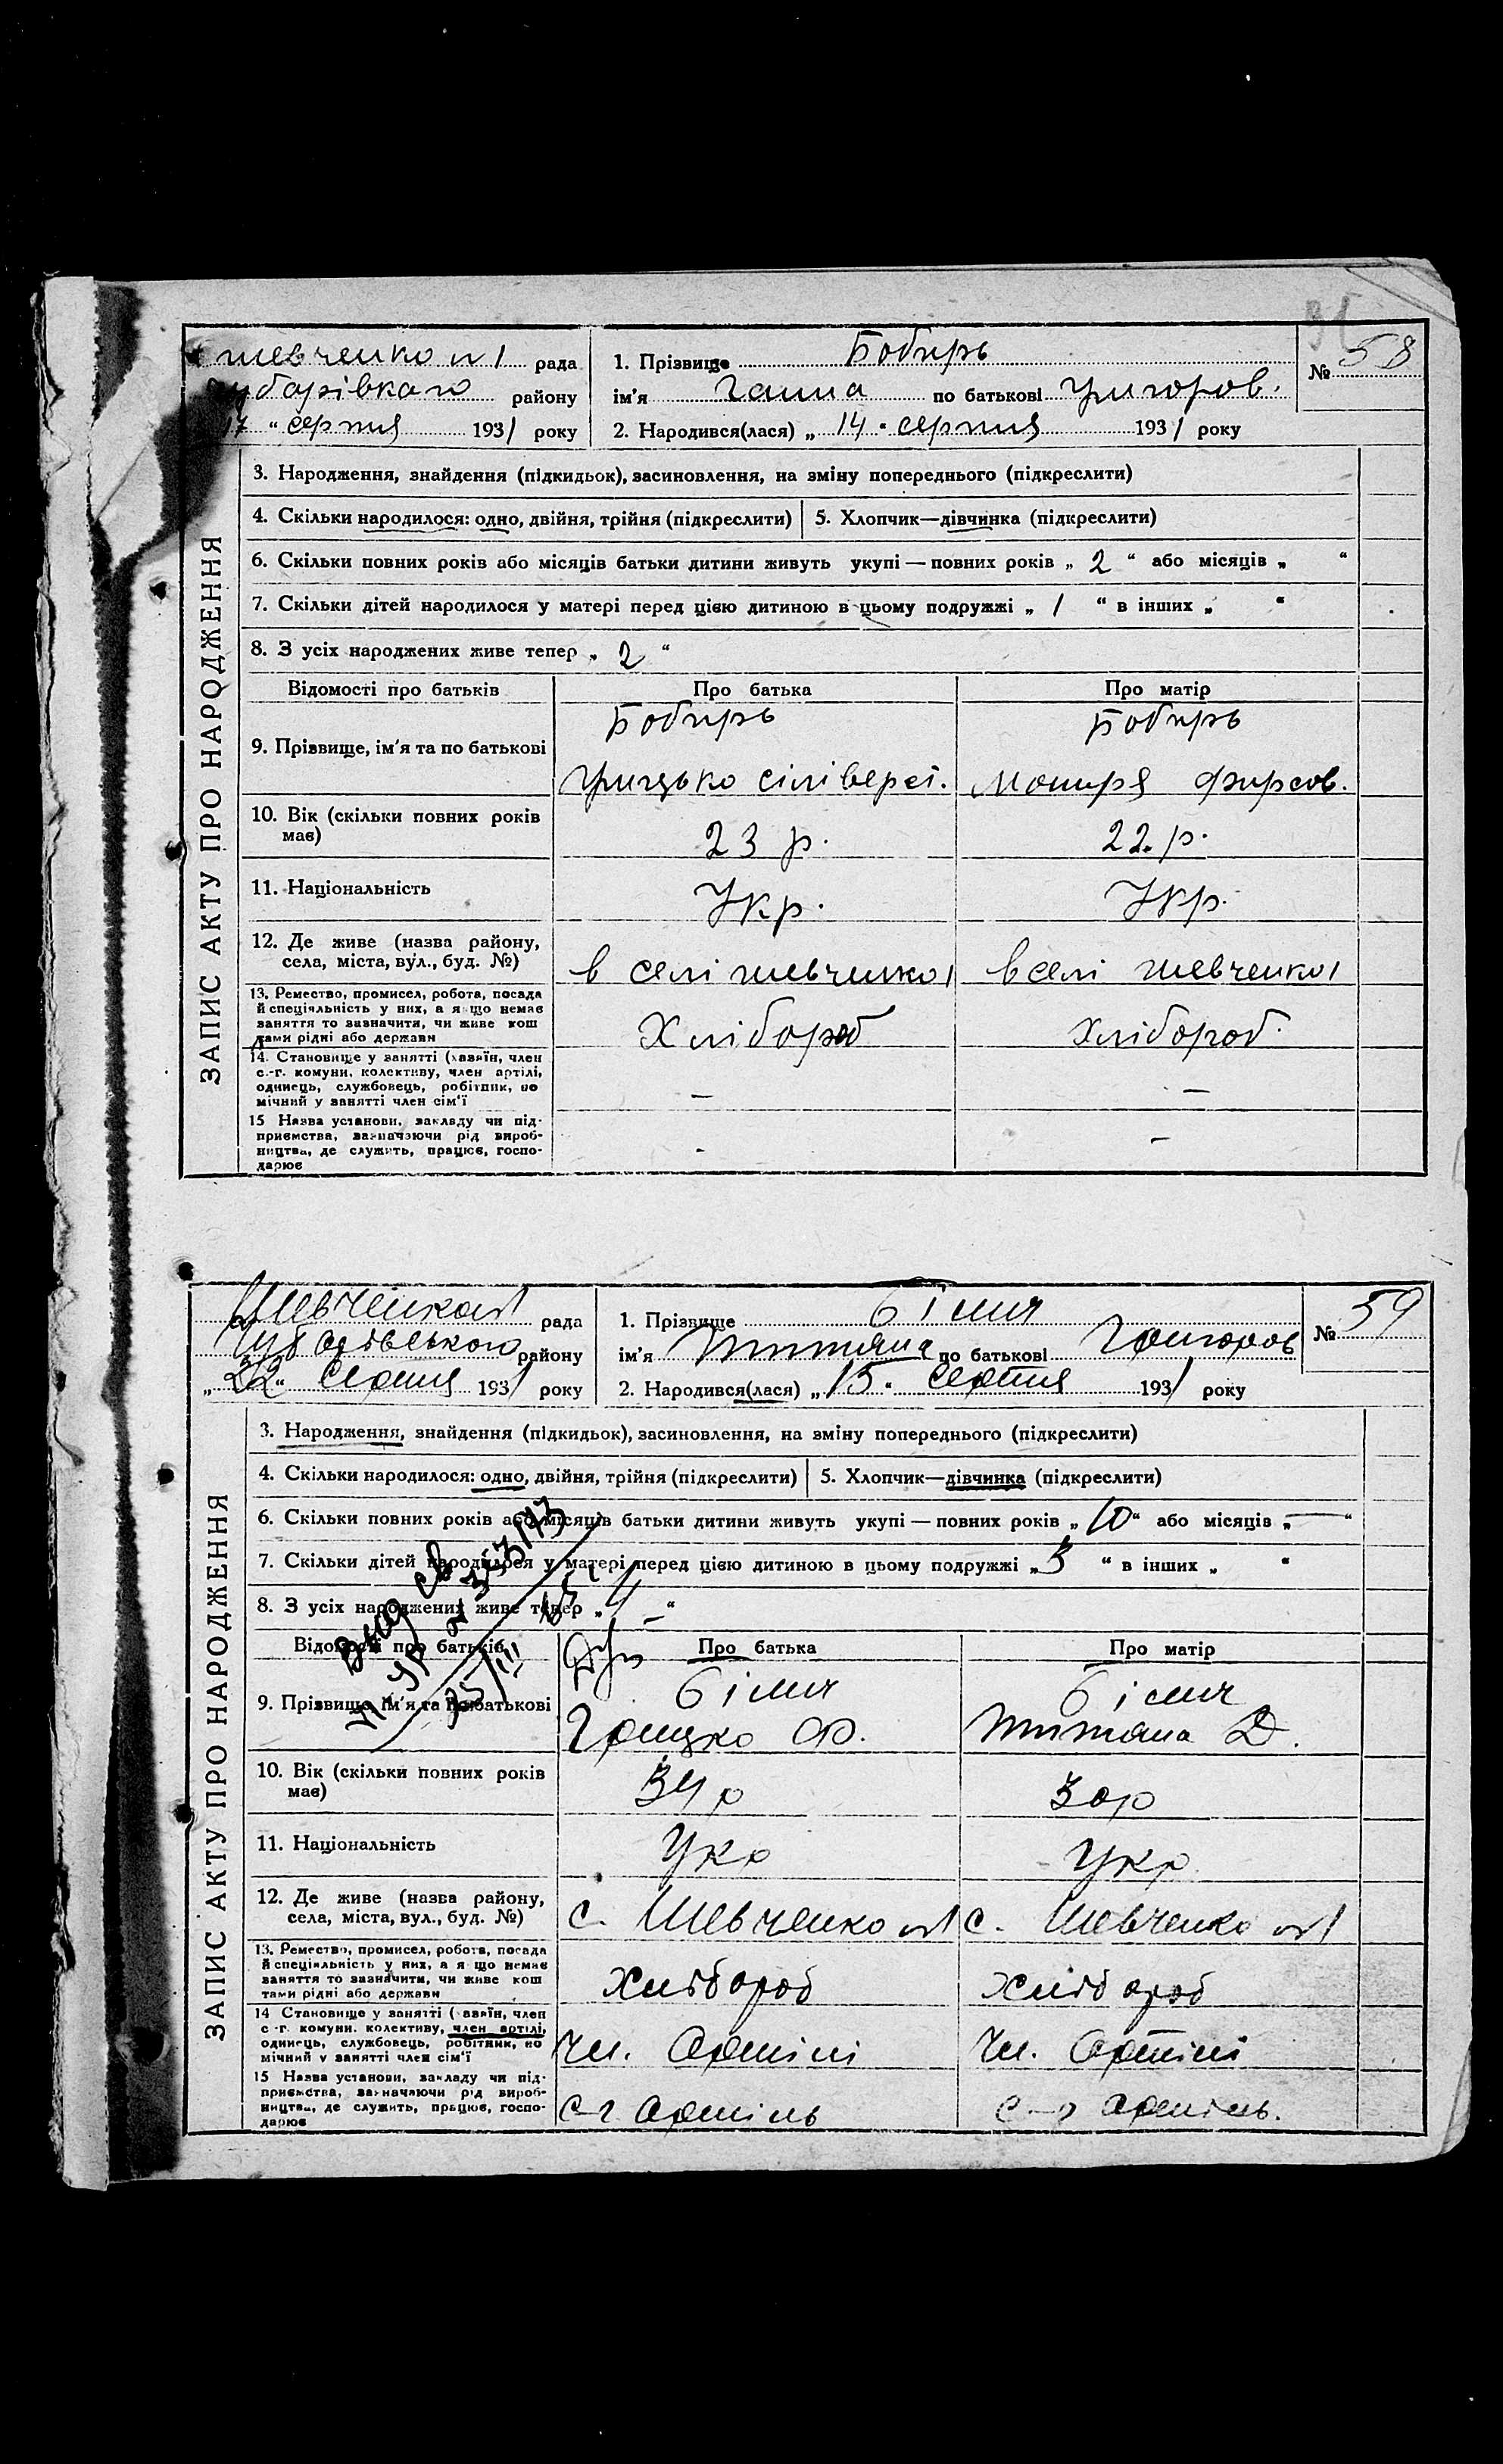 58
Шевченко №1 рада
Губарівкаго району
17 „ серпня 1931 року
1. Прізвище Бобирь
ім'я Ганна по батькові Григоров.
№ 58
2. Народився(лася) „ 14 " серпня 1931 року
ЗАПИС АКТУ ПРО НАРОДЖЕННЯ
3. Народження, знайдення (підкидьок), засиновлення, на зміну попереднього (підкреслити)
4. Скільки народилося: одно, двійня, трійня (підкреслити)
5. Хлопчик—дівчинка (підкреслити)
6. Скільки повних років або місяців батьки дитини живуть укупі — повних років „ 2 " або місяців „ "
7. Скільки дітей народилося у матері перед цією дитиною в цьому подружжі „ 1 " в інших „ "
8. З усіх народжених живе тепер „ 2 "
Відомості про батьків
Про батька
Про матір
9. Прізвище, ім'я та по батькові
Бобирь
Грицько сіліверст.
Бобирь
Мотря Фирсов.
10. Вік (скільки повних років має)
23 р.
22. р.
11. Національність
Укр.
Укр.
12. Де живе (назва району,
села, міста, вул., буд. №)
в селі шевченко1
в селі шевченко1
13. Ремество, промисел, робота, посада
й спеціяльність у них, а якщо немає
заняття то зазначити, чи живе кош
тами рідні або держави
Хлібороб
Хлібороб.
14. Становище у занятті (хазяїн, член
с.-г. комуни, колективу, член артілі,
одинець, службовець, робітник, по
мічний у занятті член сім'ї
–
–
15 Назва установи, закладу чи під-
приємства, зазначаючи рід вироб-
ництва, де служить, працює, госпо-
дарює
-
–
Шевченко №1 рада
Губарівського району
„ 22 " Серпня 1931 року
1. Прізвище Білич
ім'я Титяна по батькові Григоров
№ 59
2. Народився(лася) „ 15 " Серпня 1931 року
ЗАПИС АКТУ ПРО НАРОДЖЕННЯ
3. Народження, знайдення (підкидьок), засиновлення, на зміну попереднього (підкреслити)
4. Скільки народилося: одно, двійня, трійня (підкреслити)
5. Хлопчик—дівчинка (підкреслити)
6. Скільки повних років або місяців батьки дитини живуть укупі — повних років „ 10 " або місяців „ — "
7. Скільки дітей народилося у матері перед цією дитиною в цьому подружжі „ 3 " в інших „ "
8. З усіх народжених живе тепер „ 4 – "
Відомості про батьків
Про батька
Про матір
9. Прізвище, ім'я та по батькові
Білич
Грицко Ф.
Білич
Титяна Д.
10. Вік (скільки повних років має)
34 р
30р
11. Національність
Укр
Укр
12. Де живе (назва району,
села, міста, вул., буд. №)
с. Шевченко №1
с. Шевченко №1
13. Ремество, промисел, робота, посада
й спеціяльність у них, а якщо немає
заняття то зазначити, чи живе кош
тами рідні або держави
Хлібороб
Хлібороб
14 Становище у занятті (хазяїн, член
с.-г. комуни, колективу, член артілі,
одинець, службовець, робітник, по
мічний у занятті член сім'ї
Чл. Артілі
Чл. Артілі
15 Назва установи, закладу чи під-
приємства, зазначаючи рід вироб-
ництва, де служить, працює, госпо-
дарює
С-г Артіль
С-г Артіль.